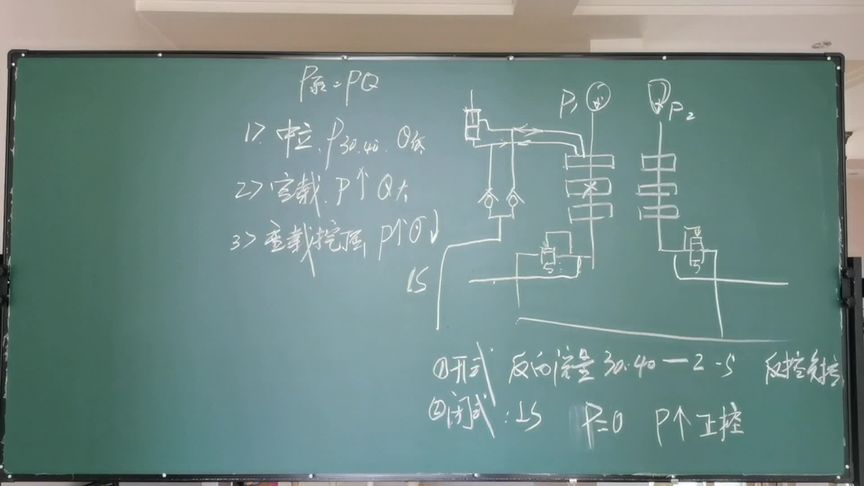 P泵=PQ
1>. 中位. P30.40. Q低
2>空载. P↑ Q大
3>重载挖掘 P↑Q↓
P1
P2
LS
①开式: 反向流量30.40—2-5 反控负控
②闭式: LS P=0 P↑正控